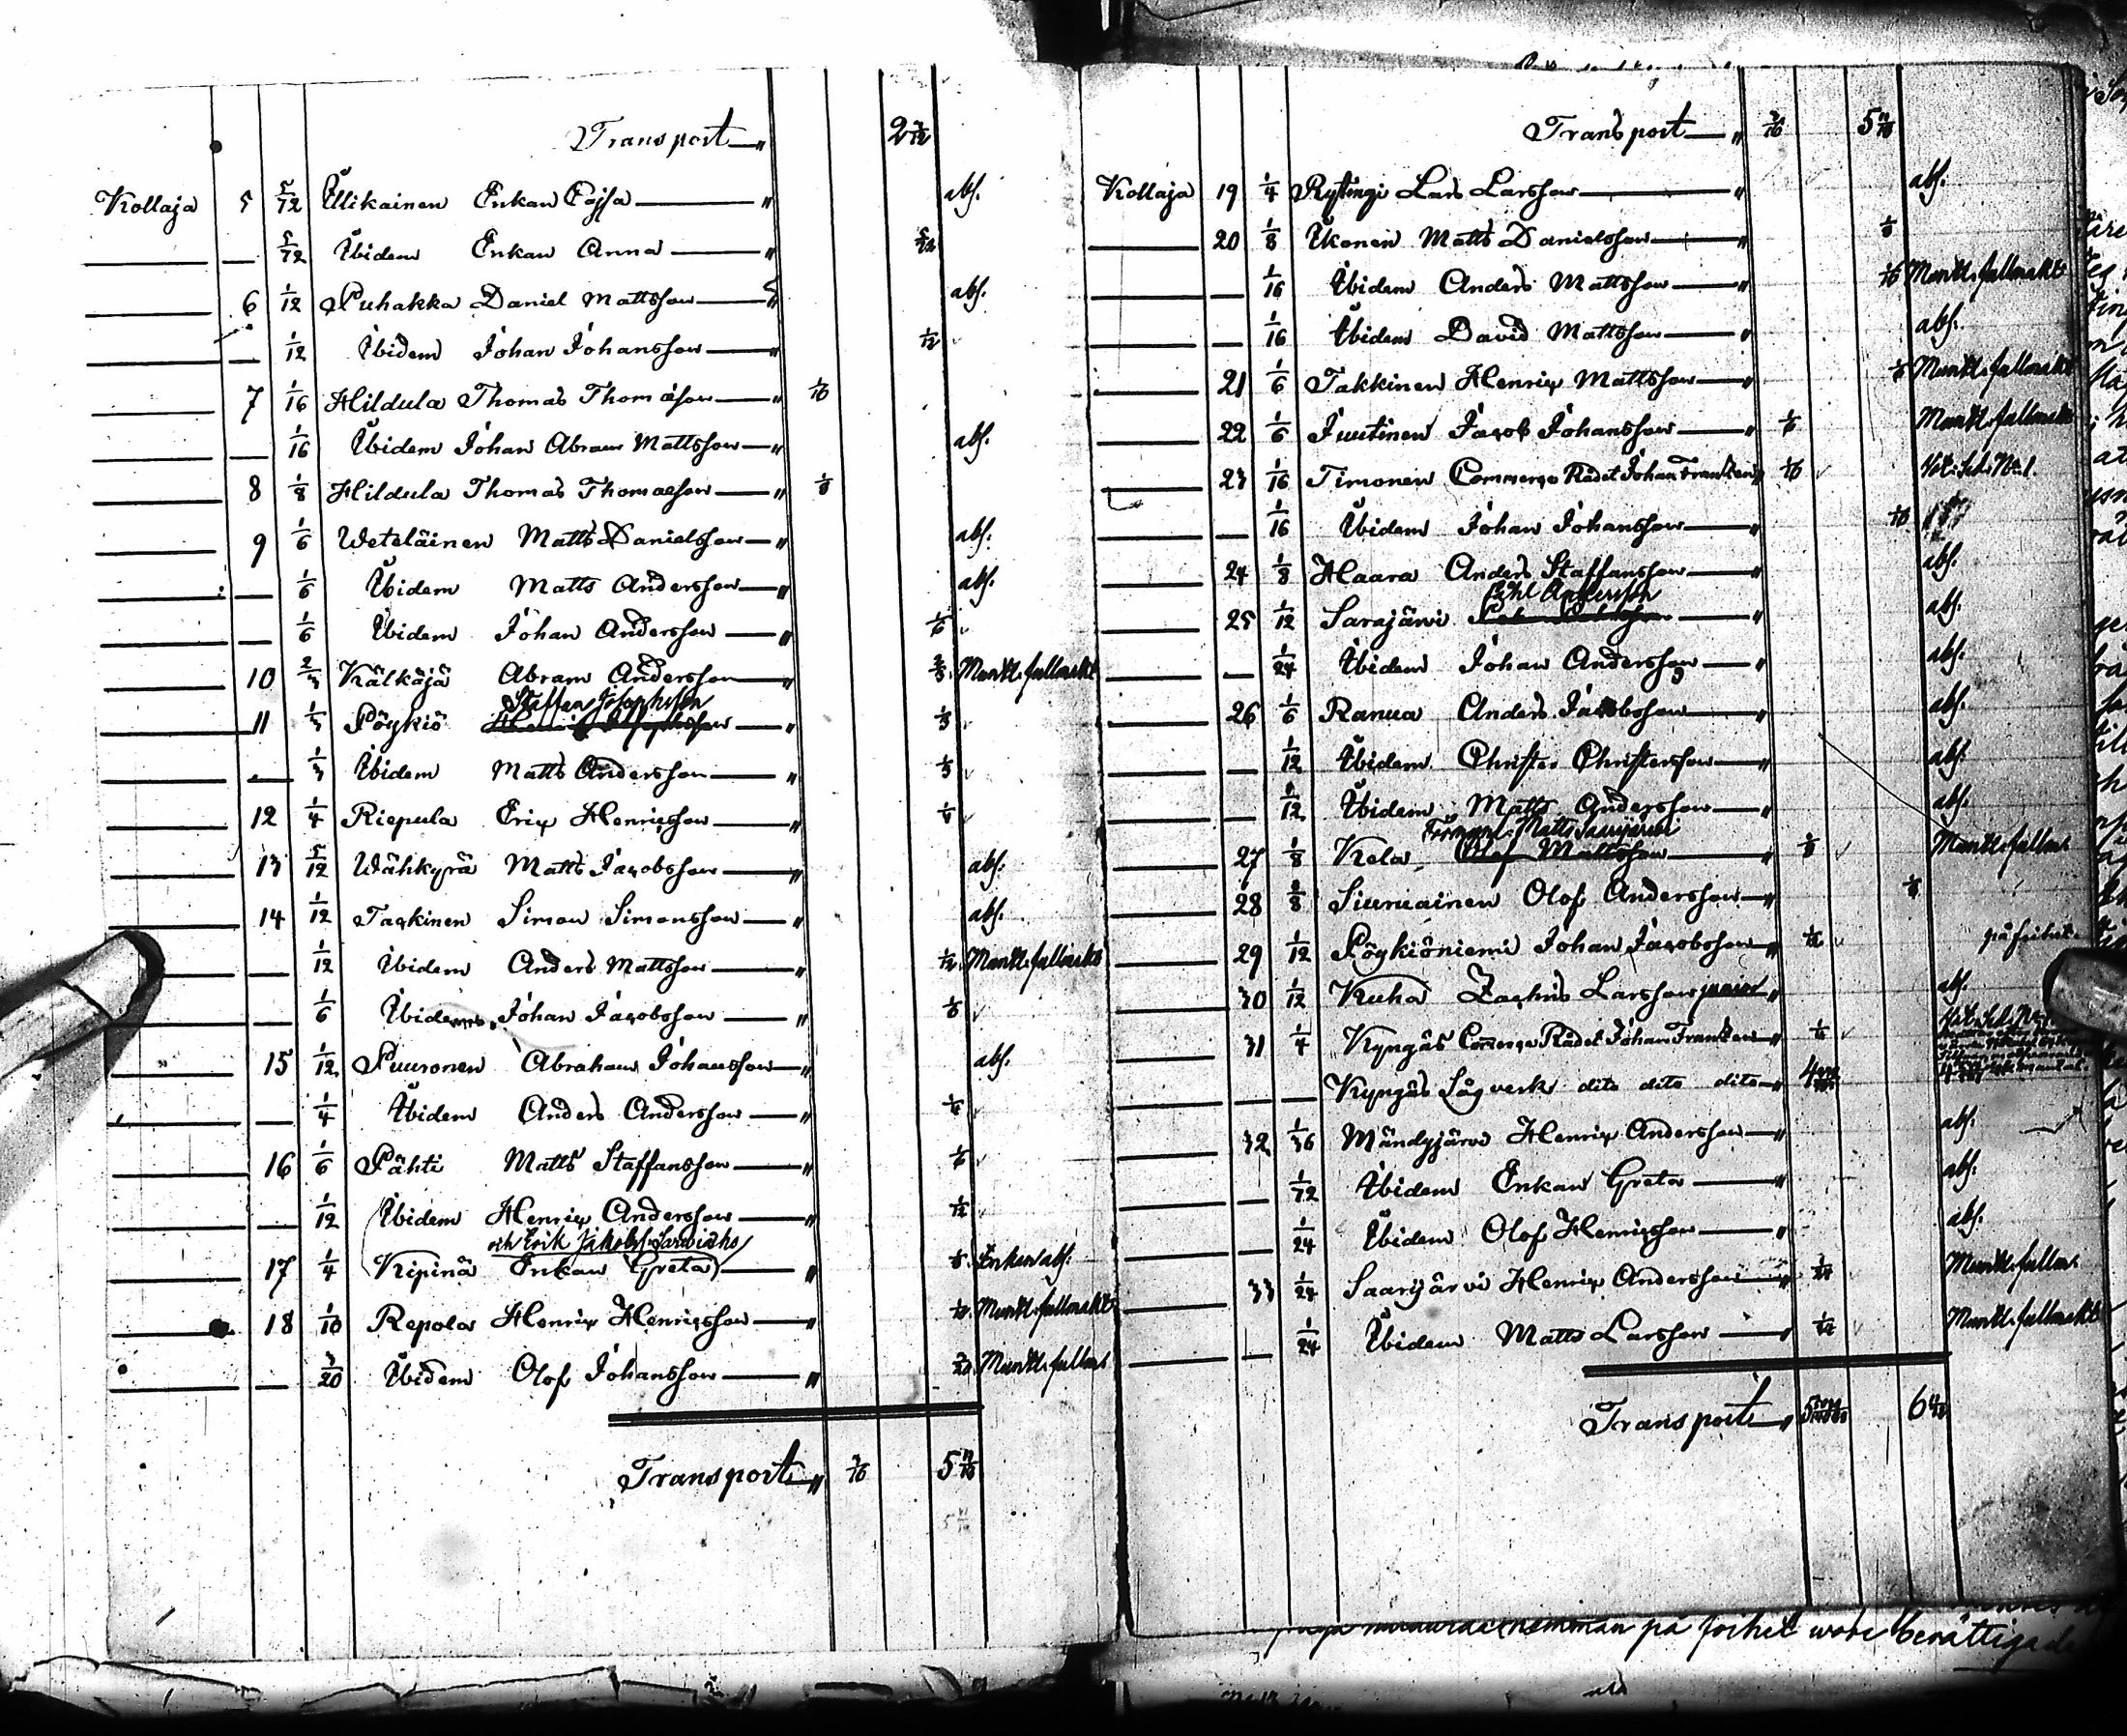 Transport
Kollaja 5 5/12 Illikainen Enkan Cajsa abs.
— 5/12 Ibidem Enkan Anna 5/12
6 1/12 Puhakka Daniel Mattsson abs.
— 1/12 Ibidem Johan Johansson 1/12
7 1/16 Hildula Thomas Thomasson 1/16
— 1/16 Ibidem Johan Abram Mattsson abs.
8 1/8 Hildula Thomas Thomasson 1/8
9 1/6 Weteläinen Matts Danielsson abs.
— 1/6 Ibidem Matts Andersson abs.
— 1/6 Ibidem Johan Andersson 1/6
10 2/3 Kälkäjä Abram Andersson 2/3 Muntl. fullmakt
Staffan Josephsson
11 1/3 Pöykiö 1/3
— 1/3 Ibidem Matts Andersson 1/3
12 1/4 Riepula Eric Henricsson 1/4
13 5/12 Wähkyrä Matts Jacobsson abs.
14 1/12 Tackinen Simon Simonsson abs.
— 1/12 Ibidem Anders Mattsson 1/12 Muntl. fullmakt
— 1/6 Ibidem Johan Jacobsson 1/6
15 1/12 Puuronen Abraham Johansson abs.
— 1/4 Ibidem Anders Andersson 1/4
16 1/6 Pähti Matts Staffansson 1/6
— 1/12 Ibidem Henric Andersson 1/12
och Erik Jakobsson
17 1/4 Kipinä Enkan Greta Enkan abs.
18 1/10 Repola Henric Henricsson 1/10 Muntl. fullmakt
— 3/20 Ibidem Olof Johansson 3/20 Muntl. fullmakt
Transport 3/16
Transport 3/16
Kollaja 19 1/4 Rytingi Lars Larsson abs.
20 1/8 Ikonen Matts Danielsson 1/8
— 1/16 Ibidem Anders Mattsson 1/16 Muntl. fullmakt
— 1/16 Ibidem David Mattsson abs.
21 1/6 Takkinen Henric Mattsson 1/6 Muntl. fullmakt
22 1/6 Juutinen Jacob Johansson 1/6 Muntl. fullmakt
23 1/16 Timonen Commerce Rådet Johan Franken 1/16 No 1.
— 1/16 Ibidem Johan Johansson 1/16
24 1/8 Haara Anders Staffansson abs.
Andersson
25 1/12 Sarajärvi abs.
— 1/24 Ibidem Johan Andersson abs.
26 1/6 Ranua Anders Jacobsson abs.
— 1/12 Ibidem Christer Christersson abs.
— 1/12 Ibidem Matts Andersson abs.
Matts Saarijärvi
27 1/8 Kela Olof Mattsson 1/8 Muntl. fullm.
28 1/8 Siuruainen Olof Andersson 1/8
29 1/12 Pöykiöniemi Johan Jacobsson 1/12 på frihet.
30 1/12 Kuha Zachris Larsson junior abs.
31 1/4 Kyngäs Commerce Rådet Johan Franken 1/4
— Kyngäs Såg verk dito dito dito
32 1/36 Mändyjärvi Henric Andersson abs.
— 1/72 Ibidem Enkan Greta abs.
— 1/24 Ibidem Olof Henricsson abs.
33 1/24 Saarijärvi Henric Andersson 1/24 Muntl. fullm.
— 1/24 Ibidem Matts Larsson 1/24 Muntl. fullmakt
Transport
på frihet wore berättigade